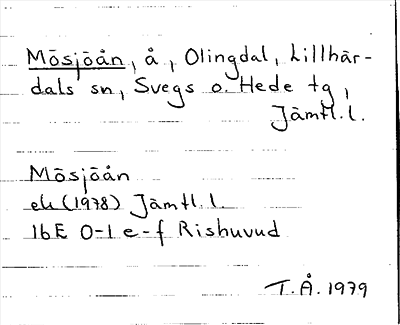 Mösjöån, å, Olingdal, Lillhär-
dals sn, Svegs o. Hede tg,
Jämtl. l.
Mösjöån
ek (1978) Jämtl. l.
16E 0-1 e-f Rishuvud
T.Å. 1979